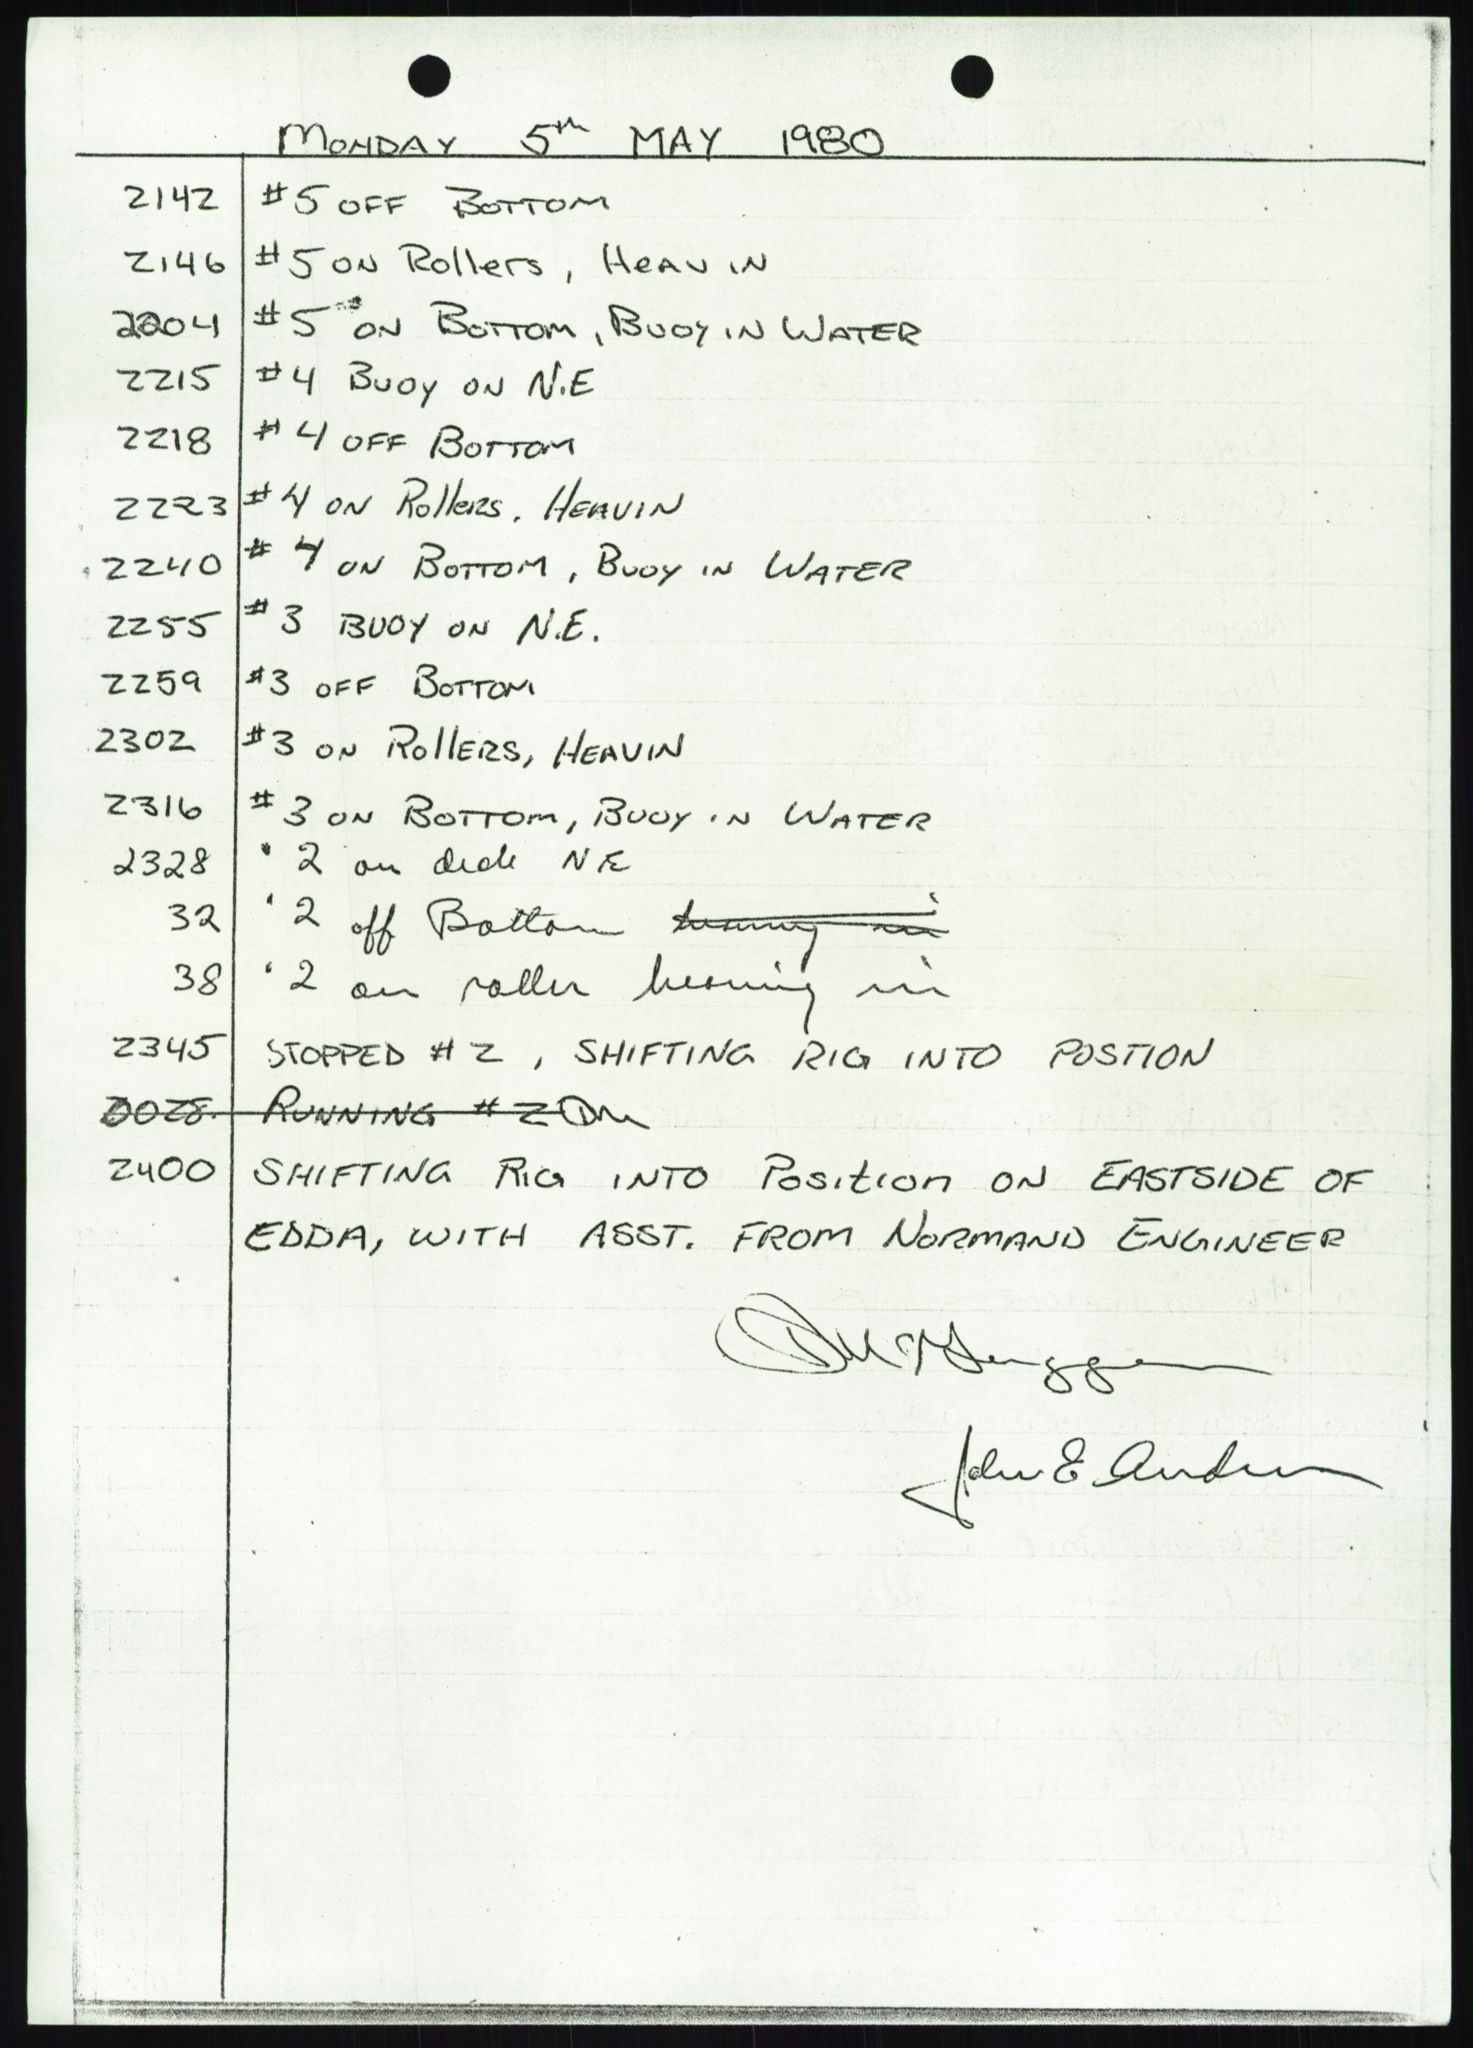 MONDAY 5th MAY 1980
2142 #5 OFF BOTTOM
2146 #5 ON Rollers, HEAV IN
2204 #5 ON BOTTOM, BUOY IN WATER
2215 #4 BUOY ON N.E
2218 #4 OFF BOTTOM
2223 #4 ON Rollers. HEAVIN
2240 #4 ON BOTTOM, BUOY IN WATER
2255 #3 BUOY ON N.E.
2259 #3 OFF BOTTOM
2302 #3 ON RollERS, HEAVIN
2316 #3 ON BOTTOM, BUOY IN WATER
2328 " 2 on deck NE
32 " 2 off Bottom heaving in
38 " 2 on roller heaving in
2345 STOPPED #2, SHIFTING RIG INTO POSTION
0028 RUNNING #2
2400 SHIFTING RIG INTO Position ON EASTSIDE OF
EDDA, WITH ASST. FROM NORMAND ENGINEER
John E